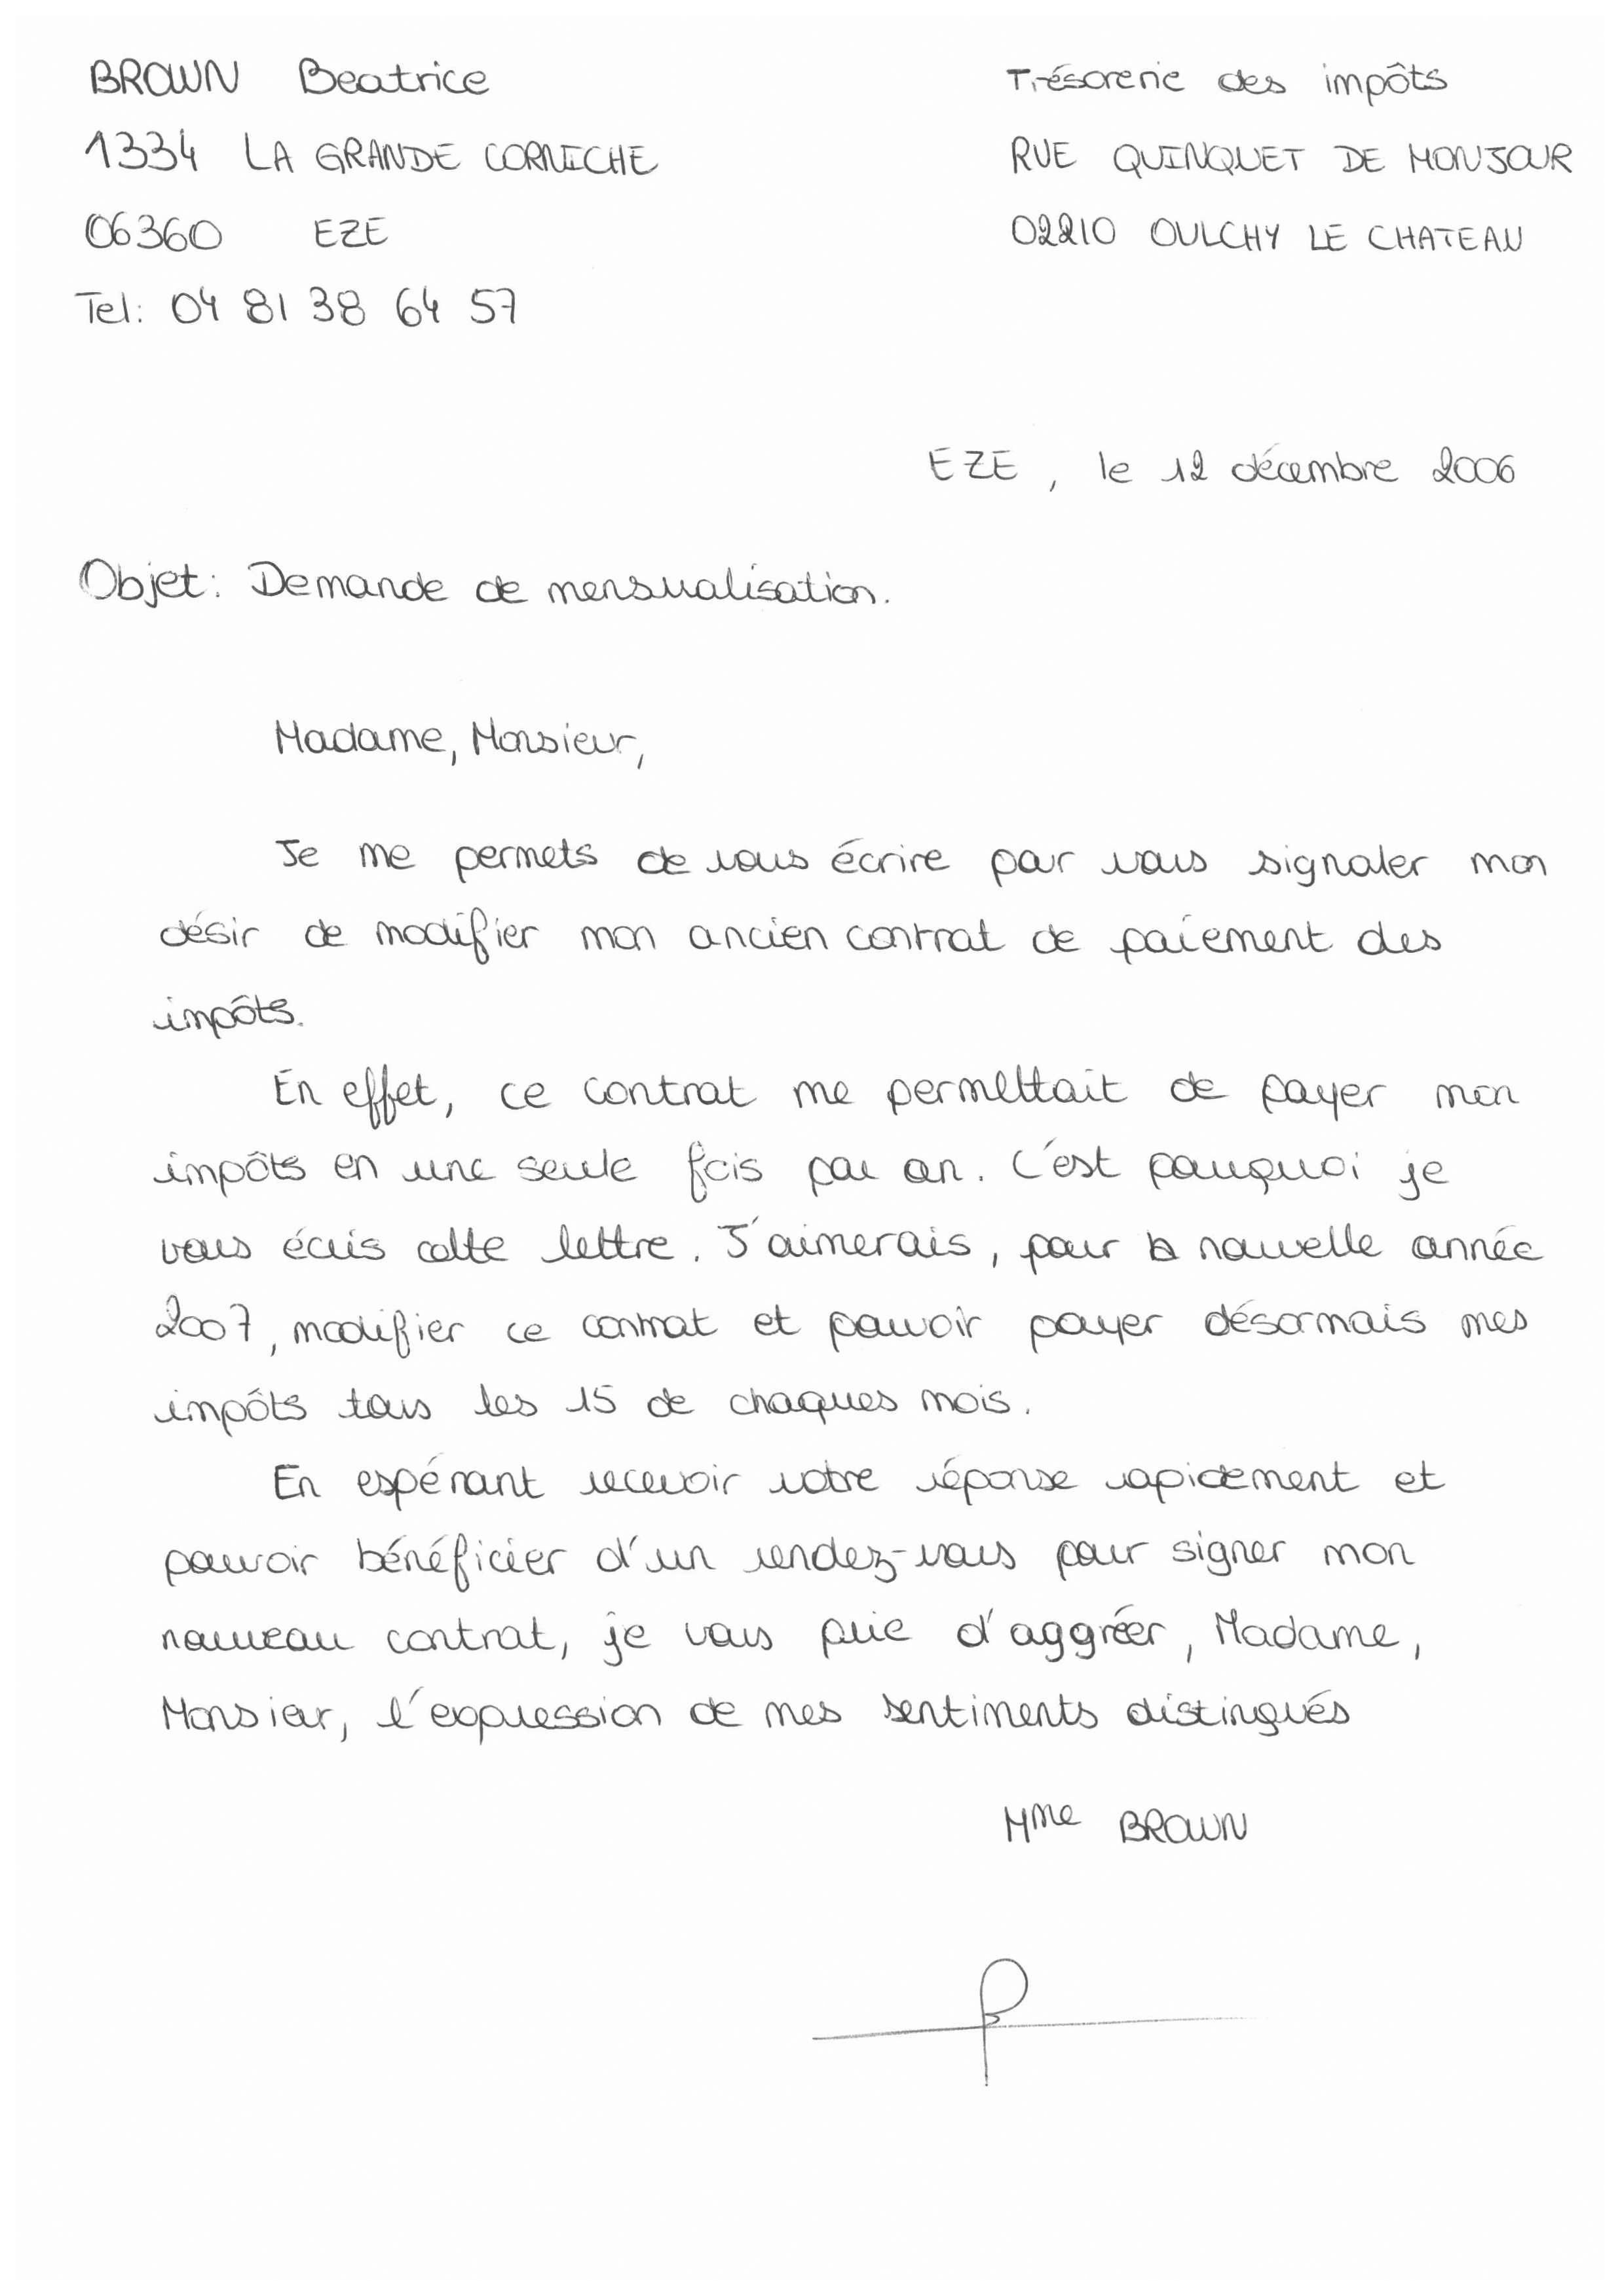 BROWN Beatrice
1334 LA GRANDE CORNICHE
06360 EZE
Tel: 04 81 38 64 57
Trésorerie des impôts
RUE QUINQUET DE MONJOUR
02210 OULCHY LE CHATEAU
EZE, le 12 décembre 2006
Objet: Demande de mensualisation.
Madame, Monsieur,
Je me permets de vous écrire pour vous signaler mon
désir de modifier mon ancien contrat de paiement des
impôts.
En effet, ce contrat me permettait de payer mon
impôts en une seule fois par an. C'est pourquoi je
vous écris cette lettre. J'aimerais, pour la nouvelle année
2007, modifier ce contrat et pouvoir payer désormais mes
impôts tous les 15 de chaques mois.
En espérant recevoir votre réponse rapidement et
pouvoir bénéficier d'un rendez-vous pour signer mon
nouveau contrat, je vous prie d'aggréer, Madame,
Monsieur, l'expression de mes sentiments distingués
Mme BROWN